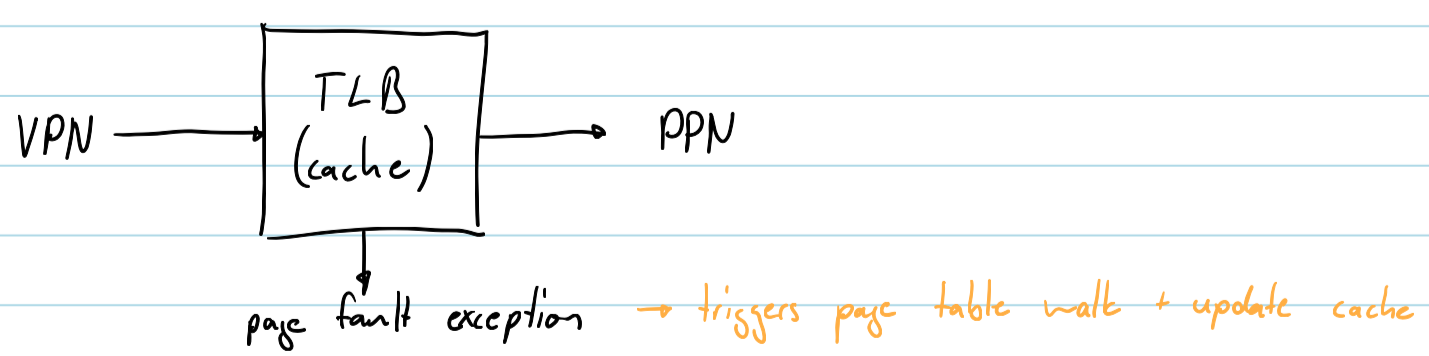 TLB
VPN → (cache) → PPN
page fault exception → triggers page table walk + update cache